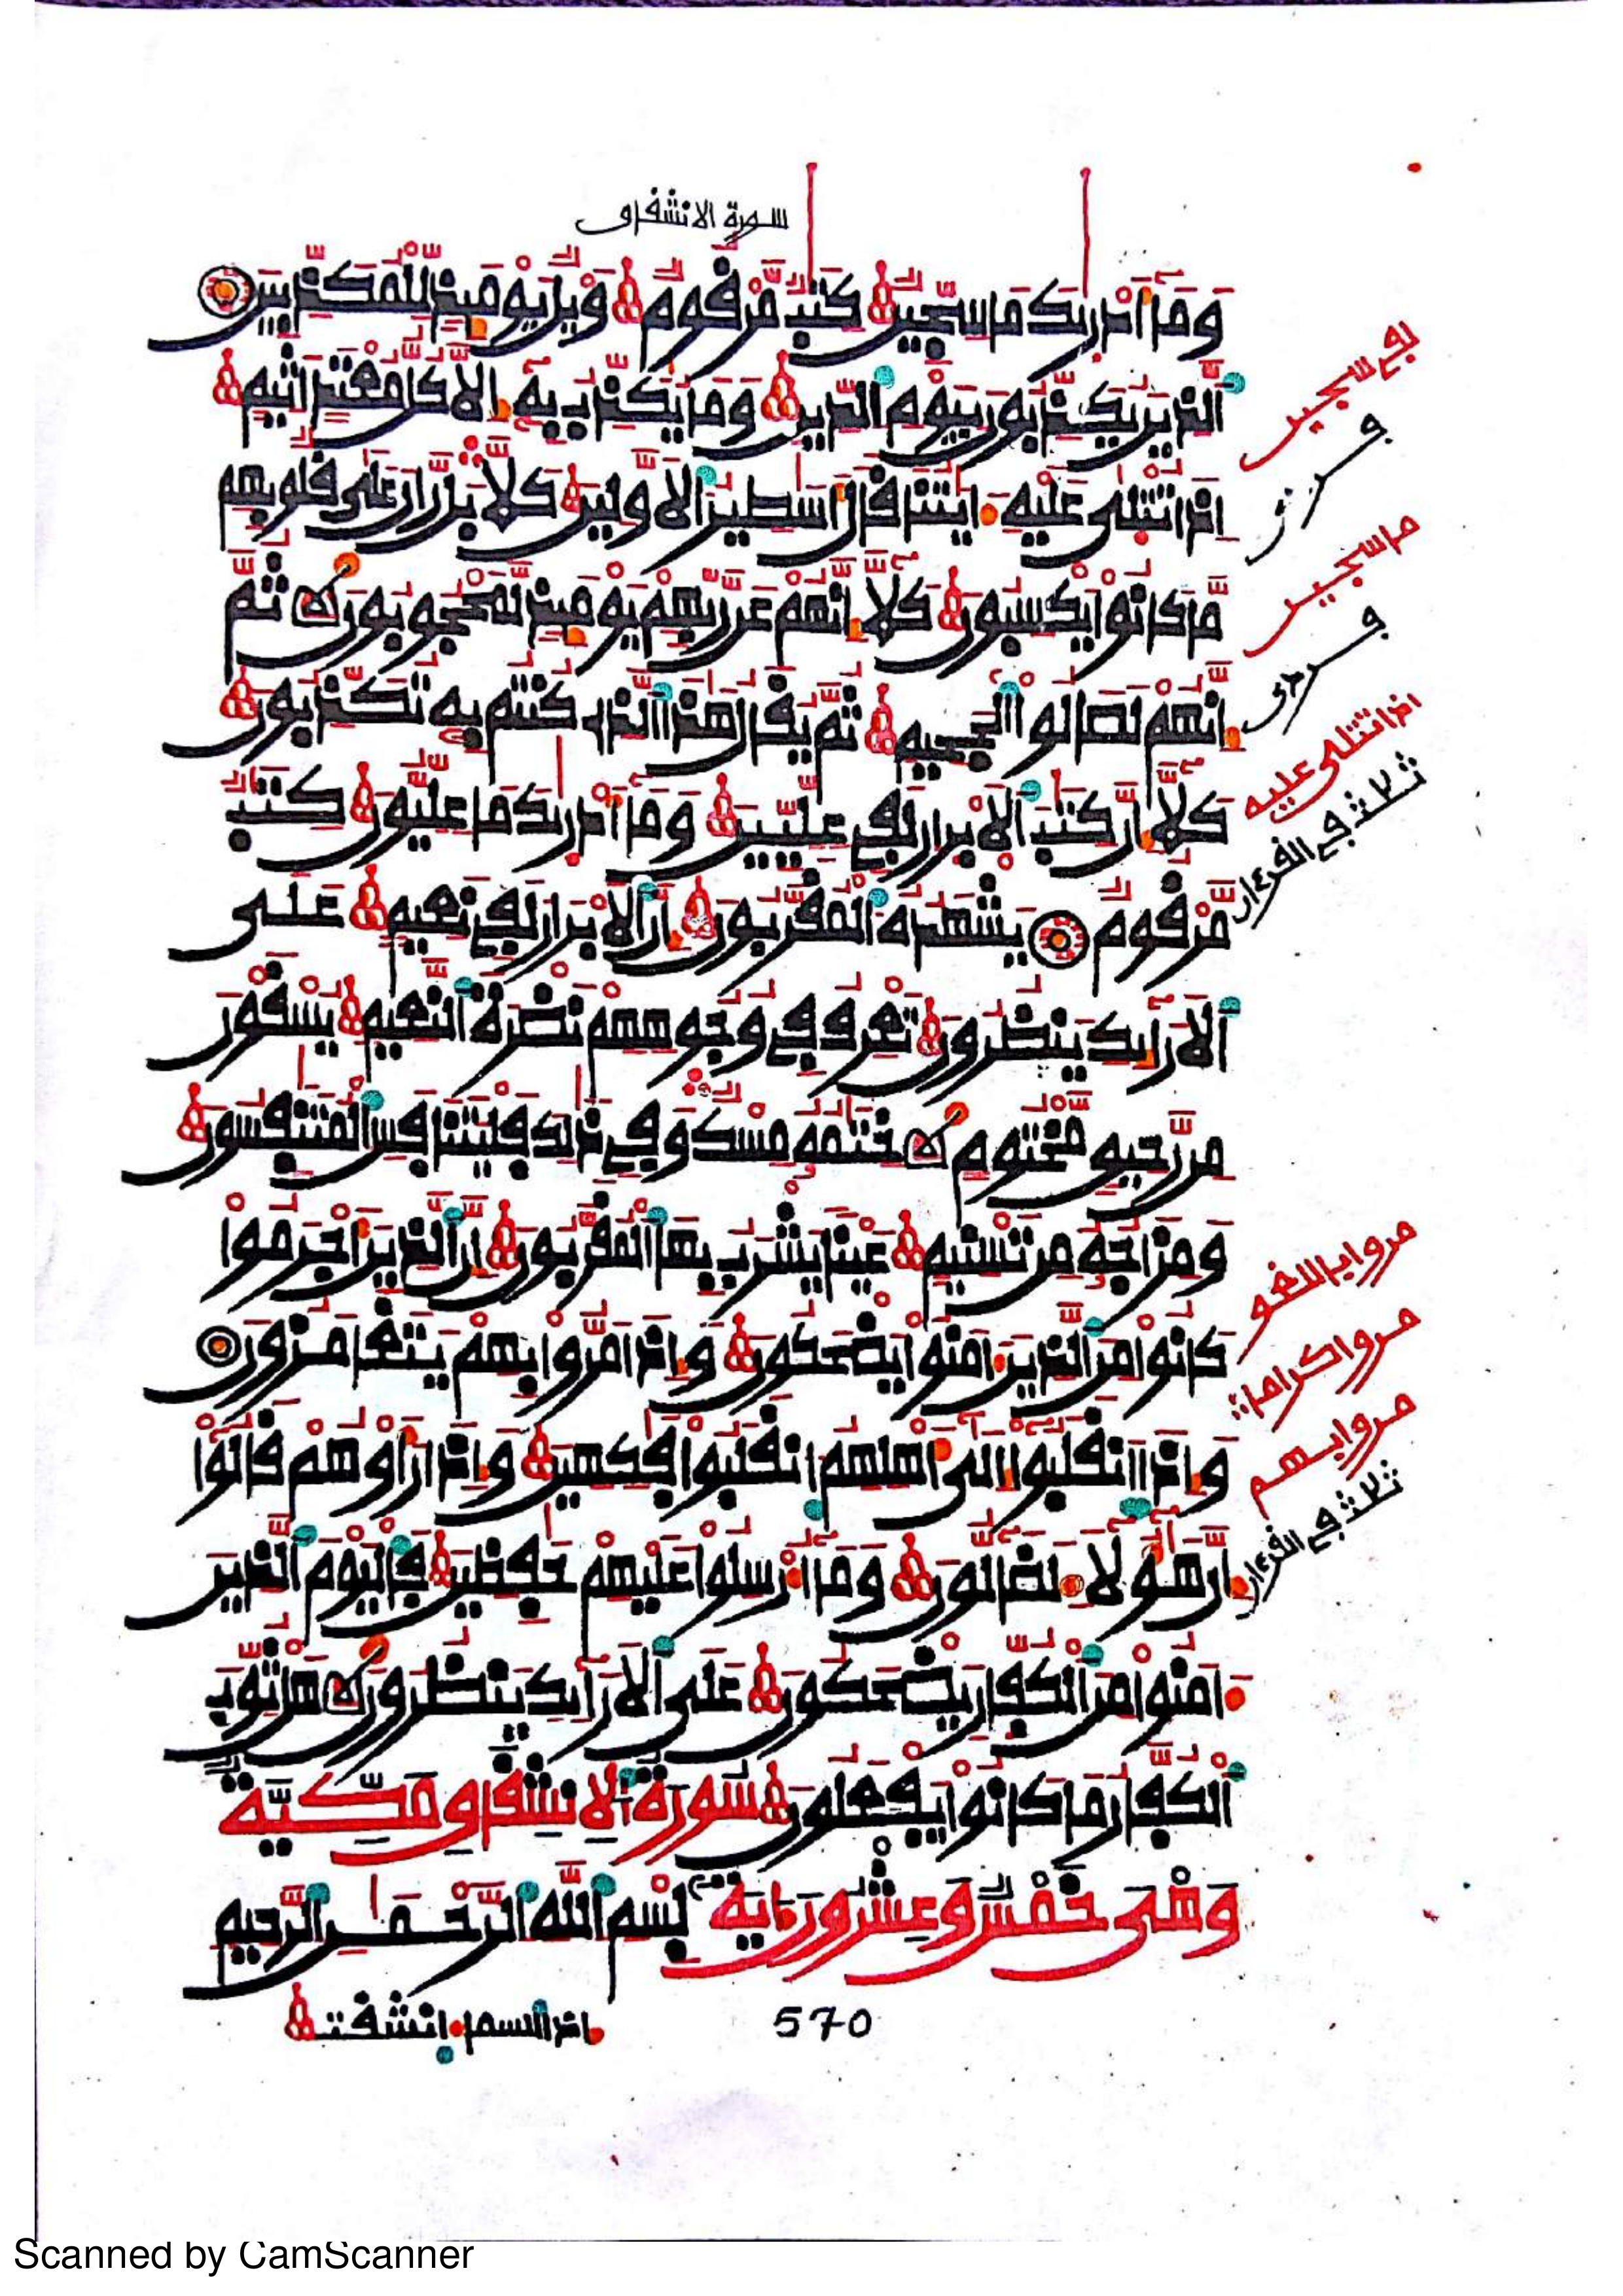 سورة الانشقاق
وَمَآ أَدْر۪يٰكَ مَا سِجِّينٌ كِتَٰبٌ مَّرْقُومٌ وَيْلٌ يَوْمَئِذٍ لِّلْمُكَذِّبِينَ
اَ۬لذِينَ يُكَذِّبُونَ بِيَوْمِ اِ۬لدِّينِ وَمَا يُكَذِّبُ بِهِۦٓ إِلَّا كُلُّ مُعْتَدٍ أَثِيمٍ
إِذَا تُتْل۪يٰ عَلَيْهِ ءَايَٰتُنَا قَالَ أَسَٰطِيرُ اُ۬لَاوَّلِينَ كَلَّا بَل رَّانَ عَلَىٰ قُلُوبِهِم
مَّا كَانُوا۟ يَكْسِبُونَ كَلَّآ إِنَّهُمْ عَن رَّبِّهِمْ يَوْمَئِذٍ لَّمَحْجُوبُونَ ثُمَّ
إِنَّهُمْ لَصَالُوا۟ اُ۬لْجَحِيمِ ثُمَّ يُقَالُ هَٰذَا اَ۬لذِى كُنتُم بِهِۦ تُكَذِّبُونَ
كَلَّآ إِنَّ كِتَٰبَ اَ۬لَابْر۪ارِ لَفِى عِلِّيِّينَ وَمَآ أَدْر۪يٰكَ مَا عِلِّيُّونَ كِتَٰبٌ
مَّرْقُومٌ يَشْهَدُهُ اُ۬لْمُقَرَّبُونَ إِنَّ اَ۬لَابْرَارَ لَفِى نَعِيمٍ عَلَى
اَ۬لَارَآئِكِ يَنظُرُونَ تَعْرِفُ فِى وُجُوهِهِمْ نَضْرَةَ اَ۬لنَّعِيمِ يُسْقَوْنَ
مِن رَّحِيقٍ مَّخْتُومٍ خِتَٰمُهُۥ مِسْكٌ وَفِى ذَٰلِكَ فَلْيَتَنَافَسِ اِ۬لْمُتَنَٰفِسُونَ
وَمِزَاجُهُۥ مِن تَسْنِيمٍ عَيْنًا يَشْرَبُ بِهَا اَ۬لْمُقَرَّبُونَ إِنَّ اَ۬لذِينَ أَجْرَمُوا۟
كَانُوا۟ مِنَ اَ۬لذِينَ ءَامَنُوا۟ يَضْحَكُونَ وَإِذَا مَرُّوا۟ بِهِمْ يَتَغَامَزُونَ
وَإِذَا اَ۪نقَلَبُوٓا۟ إِلَىٰٓ أَهْلِهِمُ اُ۪نقَلَبُوا۟ فَٰكِهِينَ وَإِذَا رَأَوْهُمْ قَالُوٓا۟
إِنَّ هَٰٓؤُلَآءِ لَضَآلُّونَ وَمَآ أُرْسِلُوا۟ عَلَيْهِمْ حَٰفِظِينَ فَالْيَوْمَ اَ۬لذِينَ
ءَامَنُوا۟ مِنَ اَ۬لْكُفّ۪ارِ يَضْحَكُونَ عَلَى اَ۬لَارَآئِكِ يَنظُرُونَ هَلْ ثُوِّبَ
اَ۬لْكُفَّارُ مَا كَانُوا۟ يَفْعَلُونَ سُورَةُ الِانشِقَاقِ مَكِّيَّةٌ
وَهْىَ خَمْسٌ وَعِشْرُونَ ءَايَةً بِسْمِ اِ۬للَّهِ اِ۬لرَّحْمَٰنِ اِ۬لرَّحِيمِ
إذا السماء انشقت
570
لفي سجين
ما سجين
إذا تتلى عليه
ثلث في القرءان
مروا باللغو
مروا كراما
مروا بهم
ثلث في القرءان
Scanned by CamScanner